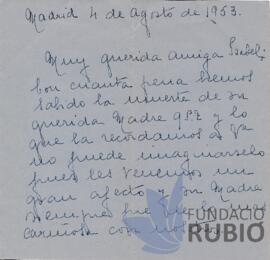 Madrid 4 de Agosto de 1953.
Muy querida amiga Isabel:
Con cuanta pena hemos
sabido la muerte de su
querida Madre q.s.g.h. y lo
que la recordamos a Vd
no puede imaginarselo
pues les tenemos un
gran afecto y su Madre
siempre fue de lo mas
cariñosa con nosotros
FUNDACIÓ
RUBIÓ